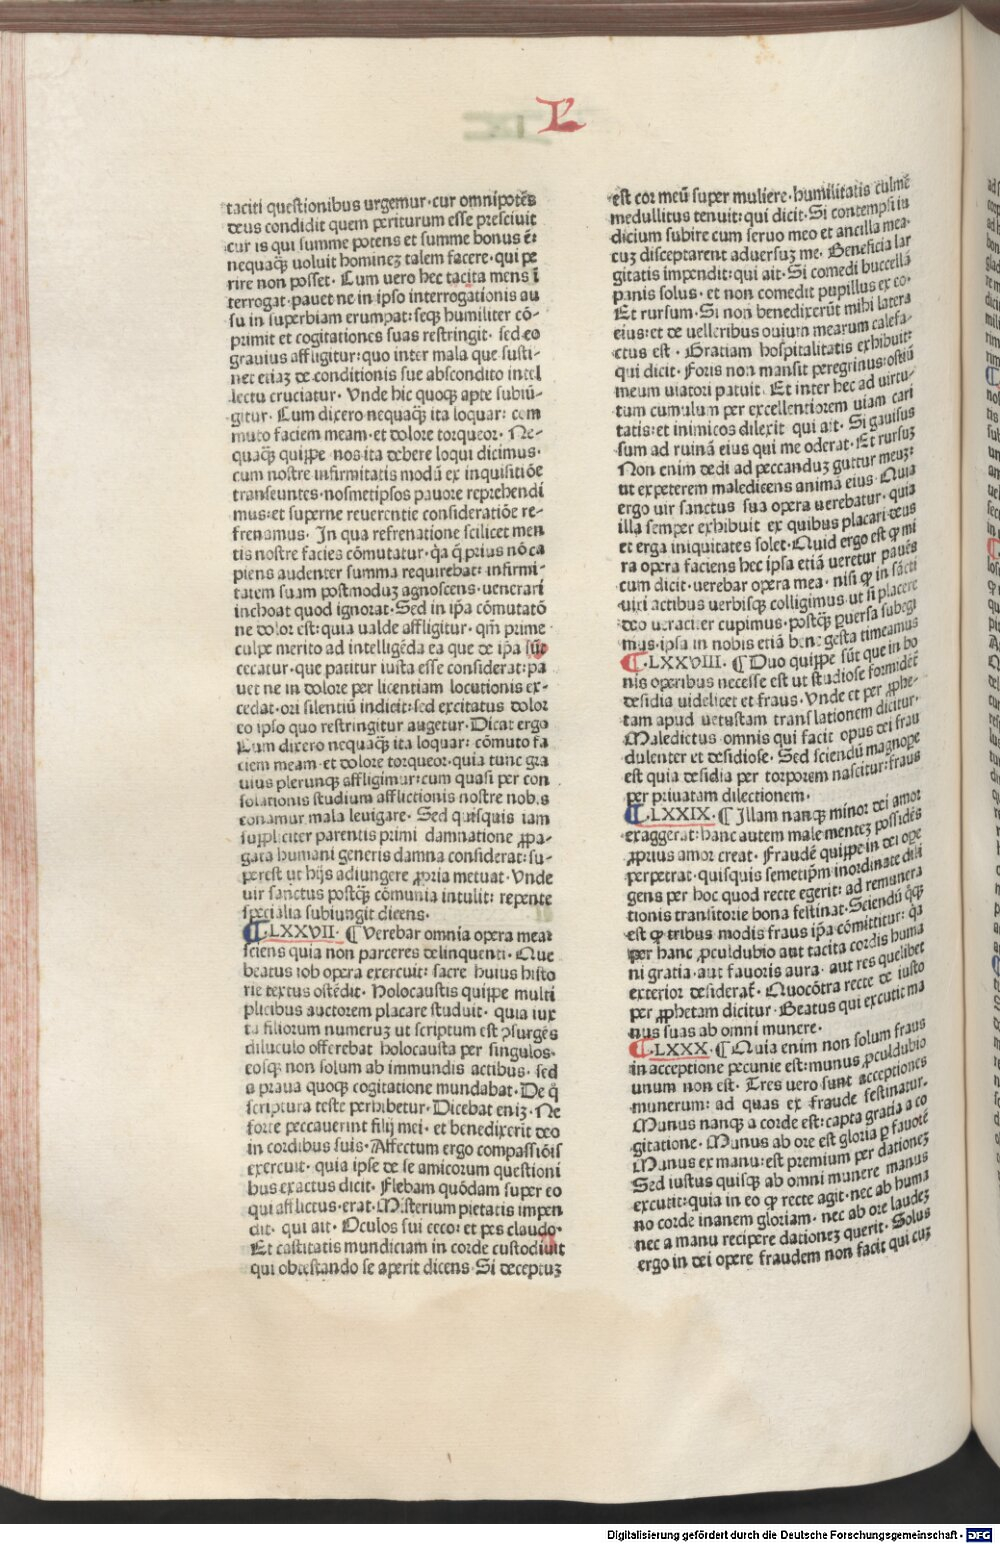 L
taciti questionibus urgemur·cur omnipotẽs
deus condidit quem periturum esse presciuit
cur is qui summe potens et summe bonus ẽ:
nequaq̃ uoluit hominez talem facere·qui pe
rire non posset· Cum uero hec tacita mens ĩ
terrogat·pauet ne in ipso interrogationis au
su in superbiam erumpat:seqȝ humiliter cõ-
primit et cogitationes suas restringit· sed eo
grauius affligitur:quo inter mala que susti-
net etiaȝ de conditionis sue abscondito intel
lectu cruciatur· Vnde hic quoqȝ apte subiũ-
gitur· Cum dixero nequaq̃ ita loquar: com
muto faciem meam·et dolore torqueor· Ne-
quaq̃ quippe nos ita debere loqui dicimus·
cum nostre infirmitatis modũ ex inquisitiõe
transeuntes·nosmetipsos pauore reprehendi
mus:et superne reuerentie consideratiõe re-
frenamus· In qua refrenatione scilicet men
tis nostre facies cõmutatur·q̃a q̃ prius nõ ca
piens audenter summa requirebat: infirmi-
tatem suam postmoduȝ agnoscens·uenerari
inchoat quod ignorat·Sed in ip̃a cõmutatõ
ne dolor est:quia ualde affligitur·qm̃ prime
culpe merito ad intelligẽda ea que de ip̃a sũt
cecatur·que patitur iusta esse considerat:pa
uet ne in dolore per licentiam locutionis ex-
cedat·ori silentiũ indicit:sed excitatus dolor
eo ipso quo restringitur augetur·Dicat ergo
Cum dixero nequaq̃ ita loquar: cõmuto fa
ciem meam·et dolore torqueor·quia tunc gra
uius plerunqȝ affligimur:cum quasi per con
solationis studium afflictionis nostre nobis
conamur mala leuigare· Sed quisquis iam
suppliciter parentis primi damnatione ꝓpa-
gata humani generis damna considerat:su-
perest ut hijs adiungere ꝓpria metuat·Vnde
uir sanctus postq̃ cõmunia intulit: repente
specialia subiungit dicens·
¶·LXXVII· ¶ Verebar omnia opera mea:
sciens quia non parceres delinquenti· Que
beatus iob opera exercuit: sacre huius histo
rie textus ostẽdit· Holocaustis quippe multi
plicibus auctorem placare studuit· quia iux
ta filiorum numeruȝ ut scriptum est ꝯsurgẽs
diluculo offerebat holocausta per singulos·
eosqȝ non solum ab immundis actibus· sed
a praua quoqȝ cogitatione mundabat·De q̃
scriptura teste perhibetur·Dicebat eniȝ·Ne
forte peccauerint filij mei· et benedixerit deo
in cordibus suis·Affectum ergo compassiõis
exercuit· quia ipse de se amicorum questioni
bus exactus dicit· Flebam quõdam super eo
qui afflictus·erat·Misterium pietatis impen
dit· qui ait· Oculos fui ceco:et pes claudo·
Et castitatis mundiciam in corde custodiuit
qui obtestando se aperit dicens· Si deceptuȝ
est cor meũ super muliere·humilitatis culmẽ
medullitus tenuit:qui dicit·Si contempsi iu
dicium subire cum seruo meo et ancilla mea·
cuȝ disceptarent aduersuȝ me· Beneficia lar
gitatis impendit:qui ait·Si comedi buccellã
panis solus·et non comedit pupillus ex eo·
Et rursum·Si non benedixerũt mihi latera
eius:et de uelleribus ouium mearum calefa-
ctus est· Gratiam hospitalitatis exhibuit:
qui dicit· Foris non mansit peregrinus:ostiũ
meum uiatori patuit· Et inter hec ad uirtu-
tum cumulum per excellentiorem uiam cari
tatis:et inimicos dilexit qui ait· Si gauisus
sum ad ruinã eius qui me oderat·Et rursuȝ
Non enim dedi ad peccanduȝ guttur meuȝ:
ut expeterem maledicens animã eius·Quia
ergo uir sanctus sua opera uerebatur·quia
illa semper exhibuit ex quibus placari deus
et erga iniquitates solet·Quid ergo est ꝙ mi
ra opera faciens hec ipsa etiã ueretur pauẽs
cum dicit·uerebar opera mea· nisi ꝙ in sãcti
uiri actibus uerbisqȝ colligimus·ut si placere
deo ueraciter cupimus·postq̃ ꝑuersa subegi
mus·ipsa in nobis etiã bene gesta timeamus
¶·LXXVIII· ¶ Duo quippe sũt que in bo
nis operibus necesse est ut studiose formidẽt
desidia uidelicet et fraus· Vnde et per ꝓphe-
tam apud uetustam translationem dicitur·
Maledictus omnis qui facit opus dei frau
dulenter et desidiose· Sed sciendũ magnope
est quia desidia per torporem nascitur:fraus
per priuatam dilectionem·
¶·LXXIX· ¶ Illam nanqȝ minor dei amor
exaggerat:hanc autem male menteȝ possidẽs
ꝓprius amor creat· Fraudẽ quippe in dei ope
perpetrat·quisquis semetip̃m inordinate dili
gens per hoc quod recte egerit: ad remunera
tionis transitorie bona festinat·Sciendũ q̃qȝ
est ꝙ tribus modis fraus ip̃a cõmittitur: q̃a
per hanc ꝓculdubio aut tacita cordis huma
ni gratia·aut fauoris aura· aut res quelibet
exterior desiderat̃· Quocõtra recte de iusto
per ꝓphetam dicitur·Beatus qui excutit ma
nus suas ab omni munere·
¶·LXXX·¶ Quia enim non solum fraus
in acceptione pecunie est:munus ꝓculdubio
unum non est· Tres uero sunt acceptiones
munerum: ad quas ex fraude festinatur·
Munus nanqȝ a corde est:capta gratia a co
gitatione· Munus ab ore est gloria ꝑ fauorẽ
Munus ex manu:est premium per dationeȝ
Sed iustus quisqȝ ab omni munere manus
excutit:quia in eo ꝙ recte agit·nec ab huma
no corde inanem gloriam· nec ab ore laudeȝ
nec a manu recipere dationeȝ querit· Solus
ergo in dei opere fraudem non facit qui cuȝ
Digitalisierung gefördert durch die Deutsche Forschungsgemeinschaft - DFG